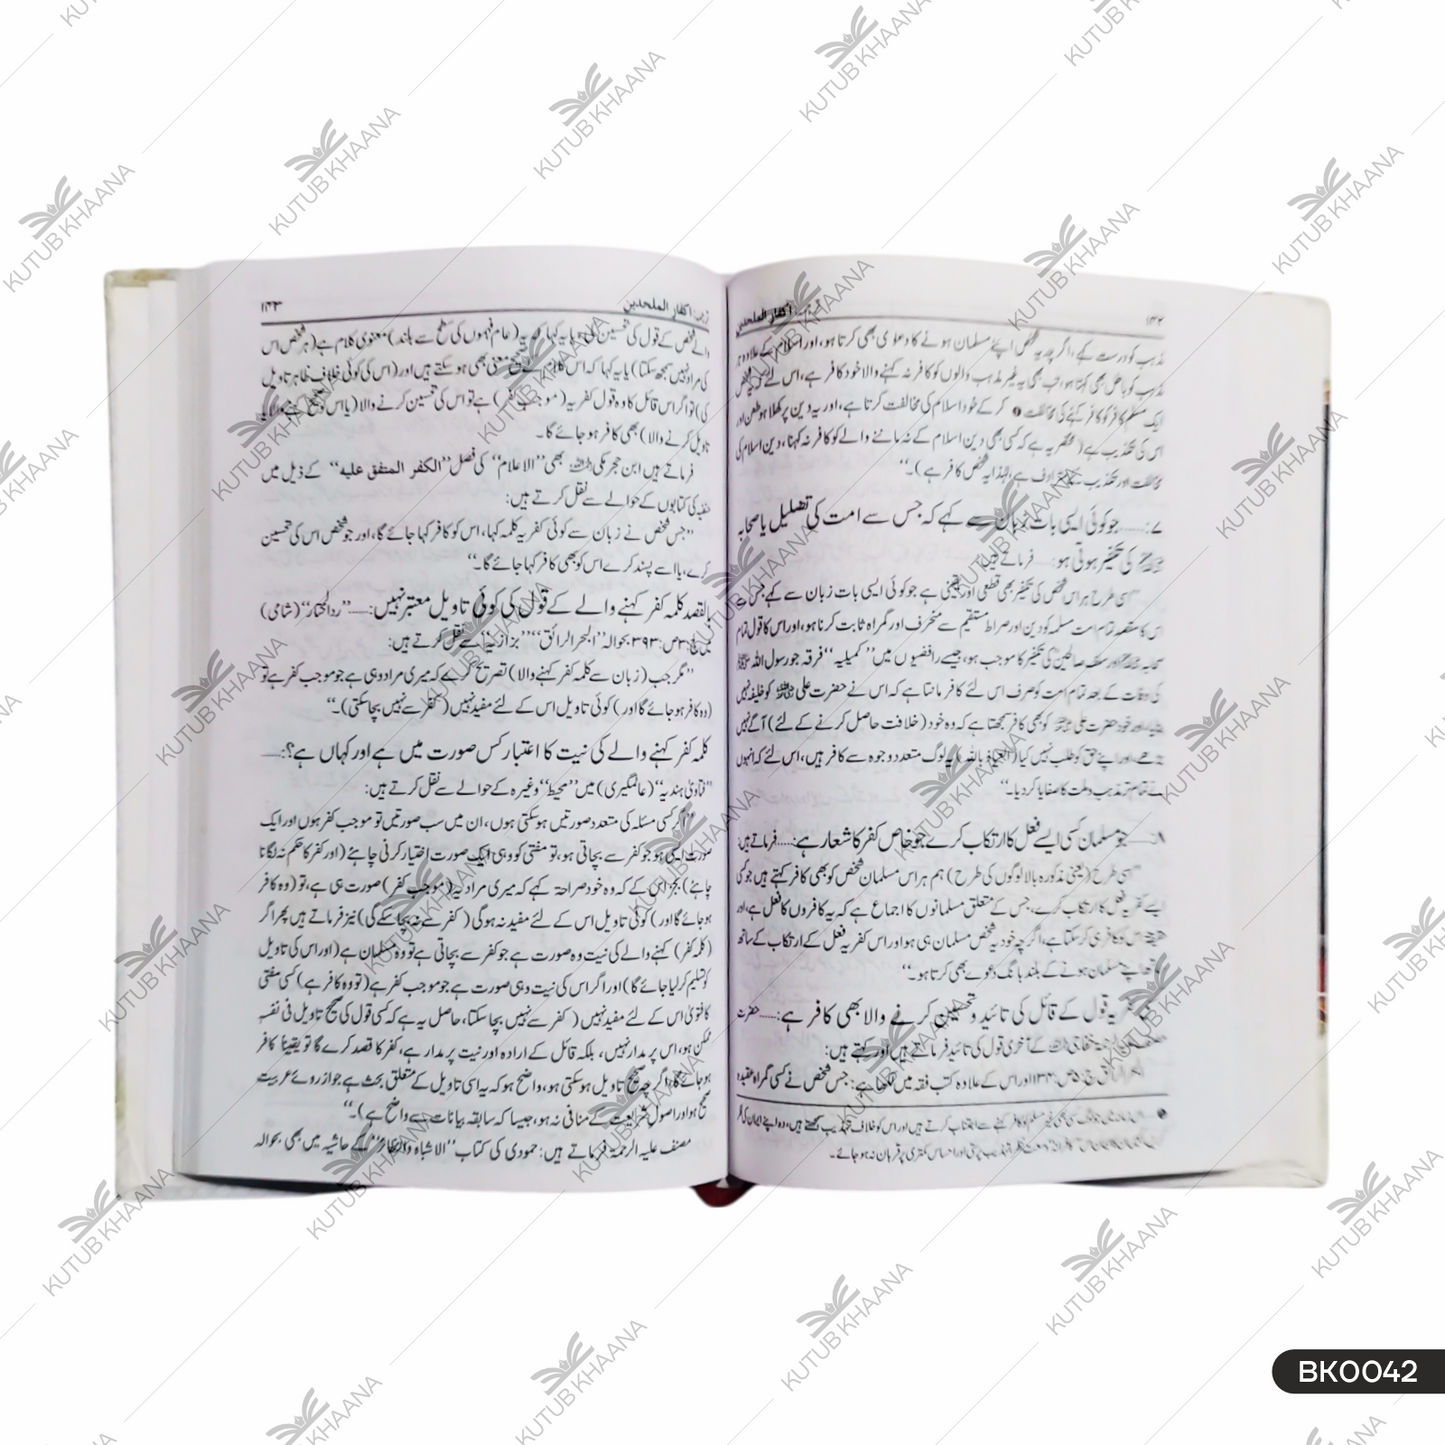 ۱۴۲
اکفار الملحدین
مذہب کو درست کہے، اگرچہ یہ شخص اپنے مسلمان ہونے کا دعویٰ بھی کرتا ہو، اور اسلام کے علاوہ ہر
مذہب کو باطل بھی کہتا ہو، تب بھی یہ غیر مذہب والوں کو کافر نہ کہنے والا خود کافر ہے، اس لئے کہ یہ شخص
ایک مسلّم کافر کو کافر کہنے کی مخالفت کر کے خود اسلام کی مخالفت کرتا ہے، اور یہ دین پر کھلا ہوا طعن اور
اس کی تکذیب ہے (مختصر یہ ہے کہ کسی بھی دین اسلام کے نہ ماننے والے کو کافر نہ کہنا، دین اسلام کی
مخالفت اور تکذیب کے مترادف ہے، لہٰذا یہ شخص کافر ہے)۔‘‘
۷:......جو کوئی ایسی بات زبان سے کہے کہ جس سے امت کی تضلیل یا صحابہ
کی تکفیر ہوتی ہو:......فرماتے ہیں:
’’اسی طرح ہر اس شخص کی تکفیر بھی قطعی اور یقینی ہے جو کوئی ایسی بات زبان سے کہے جس سے
اس کا مقصد تمام امت مسلمہ کو دین اور صراط مستقیم سے منحرف اور گمراہ ثابت کرنا ہو، اور اس کا قول تمام
صحابہ اور سلف صالحین کی تکفیر کا موجب ہو، جیسے رافضیوں میں ’’کمیلیہ‘‘ فرقہ جو رسول اللہ ﷺ
کی وفات کے بعد تمام امت کو صرف اس لئے کافر مانتا ہے کہ اس نے حضرت علی کو خلیفہ نہیں
بنایا، اور خود حضرت علی کو بھی کافر سمجھتا ہے کہ وہ خود (خلافت حاصل کرنے کے لئے) آگے نہیں
بڑھے، اور اپنے حق کو طلب نہیں کیا (العیاذ باللہ) یہ لوگ متعدد وجوہ سے کافر ہیں، اس لئے کہ انہوں
نے تمام تر مذہب و ملت کا صفایا کر دیا۔‘‘
۸:......جو مسلمان کسی ایسے فعل کا ارتکاب کرے جو خاص کفر کا شعار ہے:......فرماتے ہیں:
’’اسی طرح (یعنی مذکورہ بالا لوگوں کی طرح) ہم ہر اس مسلمان شخص کو بھی کافر کہتے ہیں جو کسی
ایسے کفریہ فعل کا ارتکاب کرے، جس کے متعلق مسلمانوں کا اجماع ہے کہ یہ کافروں کا فعل ہے، اور
اس کو کافر ہی کر سکتا ہے، اگرچہ خود یہ شخص مسلمان ہی ہو اور اس کفریہ فعل کے ارتکاب کے ساتھ
ساتھ اپنے مسلمان ہونے کے بلند بانگ دعوے بھی کرتا ہو۔‘‘
کفریہ قول کے قائل کی تائید و تحسین کرنے والا بھی کافر ہے:......حضرت
خفاجی کے آخری قول کی تائید فرماتے ہیں اور کہتے ہیں:
اور اس کے علاوہ کتب فقہ میں لکھا ہے: جس شخص نے کسی گمراہ عقیدہ
کسی بھی غیر مسلم کو کافر کہنے سے اجتناب کرتے ہیں اور اس کو خلاف تہذیب سمجھتے ہیں، وہ اپنے ایمان کی فکر
اور احساس کمتری پر قربان نہ ہو جائے۔
ترجمہ اکفار الملحدین
۱۴۳
والے شخص کے قول کی تحسین کی، یا یہ کہا کہ یہ (عام فہموں کی سطح سے بلند) معنوی کلام ہے (ہر شخص اس
کی مراد نہیں سمجھ سکتا) یا یہ کہا کہ اس کلام کے صحیح معنی بھی ہو سکتے ہیں اور (اس کی کوئی خلاف ظاہر تاویل
کی) تو اگر اس قائل کا وہ قول کفریہ (موجب کفر) ہے تو اس کی تحسین کرنے والا (یا اس کو صحیح کہنے والا یا
تاویل کرنے والا) بھی کافر ہو جائے گا۔
فرماتے ہیں ابن حجر مکی بھی ’’الاعلام‘‘ کی فصل ’’الکفر المتفق علیہ‘‘ کے ذیل میں
حنفیہ کی کتابوں کے حوالے سے نقل کرتے ہیں:
’’جس شخص نے زبان سے کوئی کفریہ کلمہ کہا، اس کو کافر کہا جائے گا، اور جو شخص اس کی تحسین
کرے، یا اسے پسند کرے اس کو بھی کافر کہا جائے گا۔‘‘
بالقصد کلمہ کفر کہنے والے کے قول کی کوئی تاویل معتبر نہیں:......’’رد المحتار‘‘ (شامی)
میں ج:۳ ص:۳۹۳ بحوالہ ’’البحر الرائق‘‘ ’’بزازیہ‘‘ سے نقل کرتے ہیں:
’’مگر جب (زبان سے کلمہ کفر کہنے والا) تصریح کرے کہ میری مراد وہی ہے جو موجب کفر ہے تو
(وہ کافر ہو جائے گا اور) کوئی تاویل اس کے لئے مفید نہیں (کفر سے نہیں بچا سکتی)۔‘‘
کلمہ کفر کہنے والے کی نیت کا اعتبار کس صورت میں ہے اور کہاں ہے؟:......
’’فتاویٰ ہندیہ‘‘ (عالمگیری) میں ’’محیط‘‘ وغیرہ کے حوالے سے نقل کرتے ہیں:
’’اگر کسی مسئلہ کی متعدد صورتیں ہو سکتی ہوں، ان میں سب صورتیں تو موجب کفر ہوں اور ایک
صورت ایسی ہو جو کفر سے بچاتی ہو، تو مفتی کو وہی ایک صورت اختیار کرنی چاہئے (اور کفر کا حکم نہ لگانا
چاہئے) بجز اس کے کہ وہ خود صراحۃً کہے کہ میری مراد یہ (موجب کفر) صورت ہی ہے، تو (وہ کافر
ہو جائے گا اور) کوئی تاویل اس کے لئے مفید نہ ہو گی (کفر سے نہ بچا سکے گی) نیز فرماتے ہیں پھر اگر
(کلمہ کفر) کہنے والے کی نیت وہ صورت ہے جو کفر سے بچاتی ہے تو وہ مسلمان ہے (اور اس کی تاویل
کو تسلیم کر لیا جائے گا) اور اگر اس کی نیت وہی صورت ہے جو موجب کفر ہے (تو وہ کافر ہے) کسی مفتی
کا فتویٰ اس کے لئے مفید نہیں (کفر سے نہیں بچا سکتا، حاصل یہ ہے کہ کسی قول کی صحیح تاویل فی نفسہٖ
ممکن ہو، اس پر مدار نہیں، بلکہ قائل کے ارادہ اور نیت پر مدار ہے، کفر کا قصد کرے گا تو یقیناً کافر
ہو جائے گا، اگرچہ صحیح تاویل ہو سکتی ہو، واضح ہو کہ یہ اسی تاویل کے متعلق بحث ہے جو از روئے عربیت
صحیح ہو اور اصول شریعت کے منافی نہ ہو، جیسا کہ سابقہ بیانات سے واضح ہے)۔‘‘
مصنف علیہ الرحمۃ فرماتے ہیں: حموی کی کتاب ’’الاشباہ والنظائر‘‘ کے حاشیہ میں بھی بحوالہ
KUTUB KHAANA
BK0042